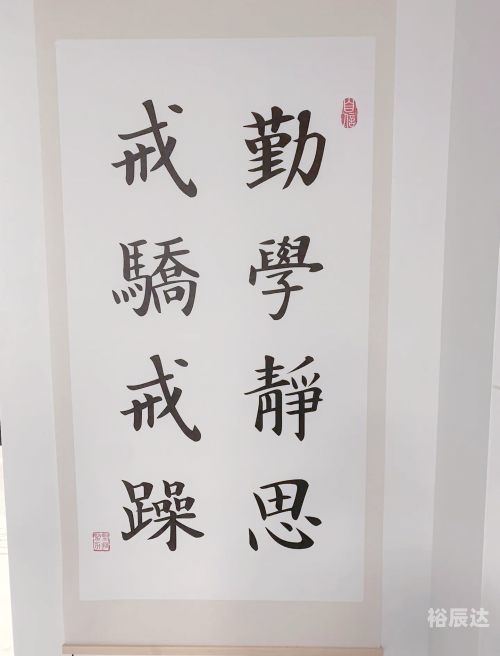 勤學靜思
戒驕戒躁
自信
裕辰达